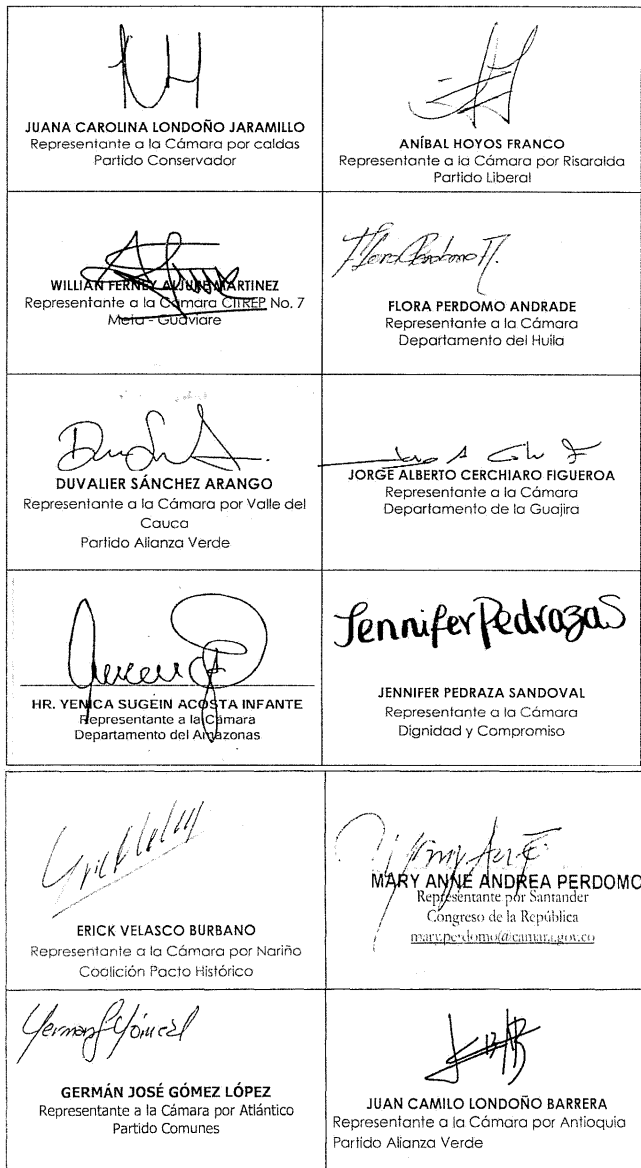 JUANA CAROLINA LONDOÑO JARAMILLO
Representante a la Cámara por caldas
Partido Conservador
ANÍBAL HOYOS FRANCO
Representante a la Cámara por Risaralda
Partido Liberal
WILLIAN FERNEY ALJURE MARTINEZ
Representante a la Cámara CITREP No. 7
Meta - Guaviare
FLORA PERDOMO ANDRADE
Representante a la Cámara
Departamento del Huila
DUVALIER SÁNCHEZ ARANGO
Representante a la Cámara por Valle del
Cauca
Partido Alianza Verde
JORGE ALBERTO CERCHIARO FIGUEROA
Representante a la Cámara
Departamento de la Guajira
HR. YENICA SUGEIN ACOSTA INFANTE
Representante a la Cámara
Departamento del Amazonas
Jennifer Pedraza S
JENNIFER PEDRAZA SANDOVAL
Representante a la Cámara
Dignidad y Compromiso
ERICK VELASCO BURBANO
Representante a la Cámara por Nariño
Coalición Pacto Histórico
MARY ANNE ANDREA PERDOMO
Representante por Santander
Congreso de la República
mary.perdomo@camara.gov.co
GERMÁN JOSÉ GÓMEZ LÓPEZ
Representante a la Cámara por Atlántico
Partido Comunes
JUAN CAMILO LONDOÑO BARRERA
Representante a la Cámara por Antioquia
Partido Alianza Verde